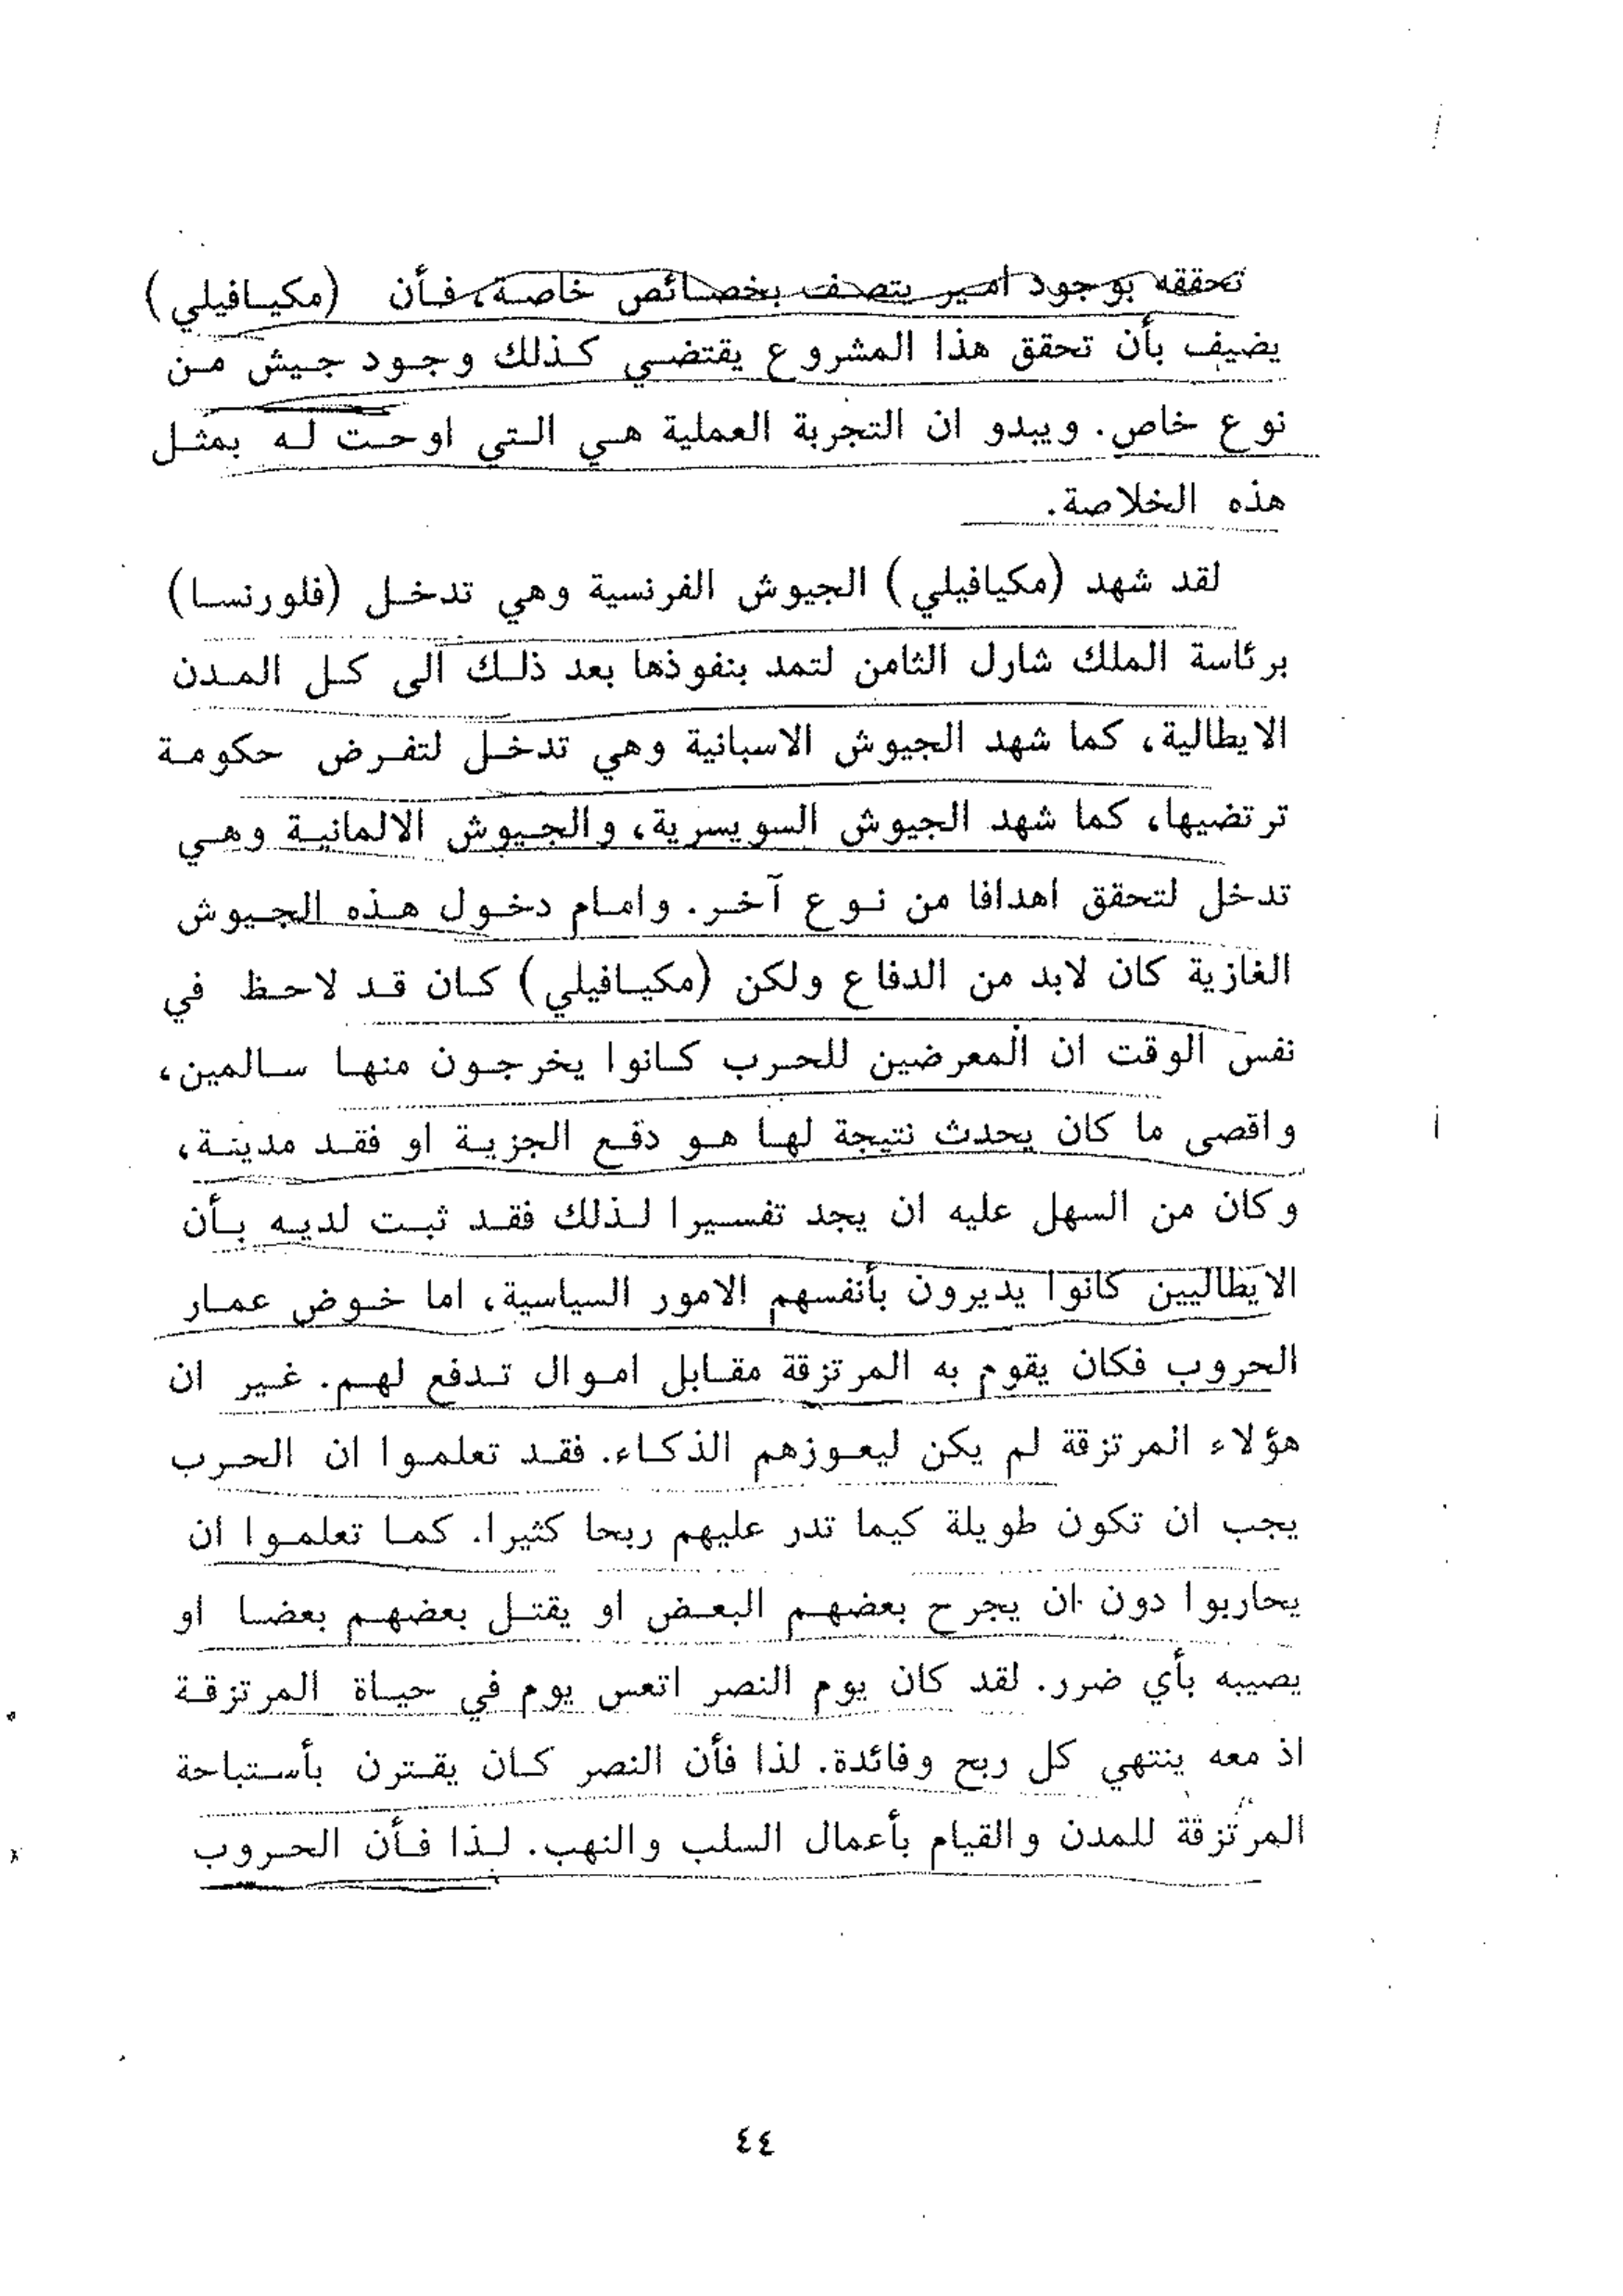 تحققه بوجود امير يتصف بخصائص خاصة، فأن (مكيافيلي)
يضيف بأن تحقق هذا المشروع يقتضي كذلك وجود جيش من
نوع خاص. ويبدو ان التجربة العملية هي التي اوحت له بمثل
هذه الخلاصة.
لقد شهد (مكيافيلي) الجيوش الفرنسية وهي تدخل (فلورنسا)
برئاسة الملك شارل الثامن لتمد بنفوذها بعد ذلك الى كل المدن
الايطالية، كما شهد الجيوش الاسبانية وهي تدخل لتفرض حكومة
ترتضيها، كما شهد الجيوش السويسرية، والجيوش الالمانية وهي
تدخل لتحقق اهدافا من نوع آخر. وامام دخول هذه الجيوش
الغازية كان لابد من الدفاع ولكن (مكيافيلي) كان قد لاحظ في
نفس الوقت ان المعرضين للحرب كانوا يخرجون منها سالمين،
واقصى ما كان يحدث نتيجة لها هو دفع الجزية او فقد مدينة،
وكان من السهل عليه ان يجد تفسيرا لذلك فقد ثبت لديه بأن
الايطاليين كانوا يديرون بأنفسهم الامور السياسية، اما خوض عمار
الحروب فكان يقوم به المرتزقة مقابل اموال تدفع لهم. غير ان
هؤلاء المرتزقة لم يكن ليعوزهم الذكاء. فقد تعلموا ان الحرب
يجب ان تكون طويلة كيما تدر عليهم ربحا كثيرا. كما تعلموا ان
يحاربوا دون ان يجرح بعضهم البعض او يقتل بعضهم بعضا او
يصيبه بأي ضرر. لقد كان يوم النصر اتعس يوم في حياة المرتزقة
اذ معه ينتهي كل ربح وفائدة. لذا فأن النصر كان يقترن بأستباحة
المرتزقة للمدن والقيام بأعمال السلب والنهب. لذا فأن الحروب
٤٤